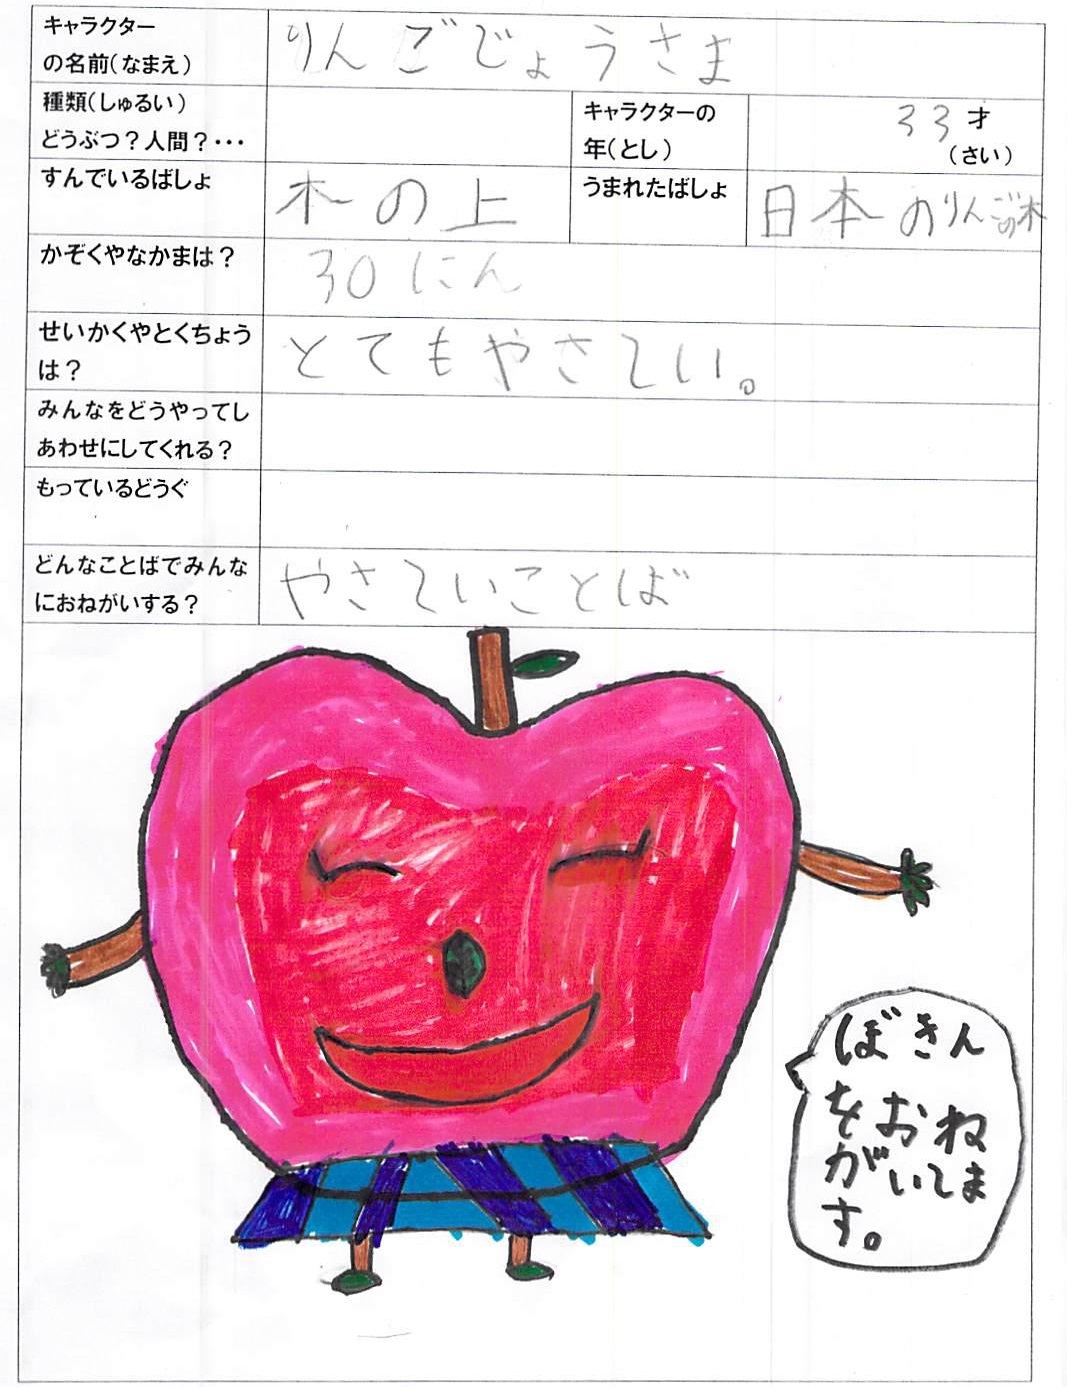 キャラクター
の名前(なまえ)
りんごじょうさま
種類(しゅるい)
どうぶつ？人間？・・・
キャラクターの
年(とし)
33才
(さい)
すんでいるばしょ
木の上
うまれたばしょ
日本のりんごの木
かぞくやなかまは？
30にん
せいかくやとくちょう
は？
とてもやさしい。
みんなをどうやってし
あわせにしてくれる？
もっているどうぐ
どんなことばでみんな
におねがいする？
やさしいことば
ぼきん
をおね
がいしま
す。